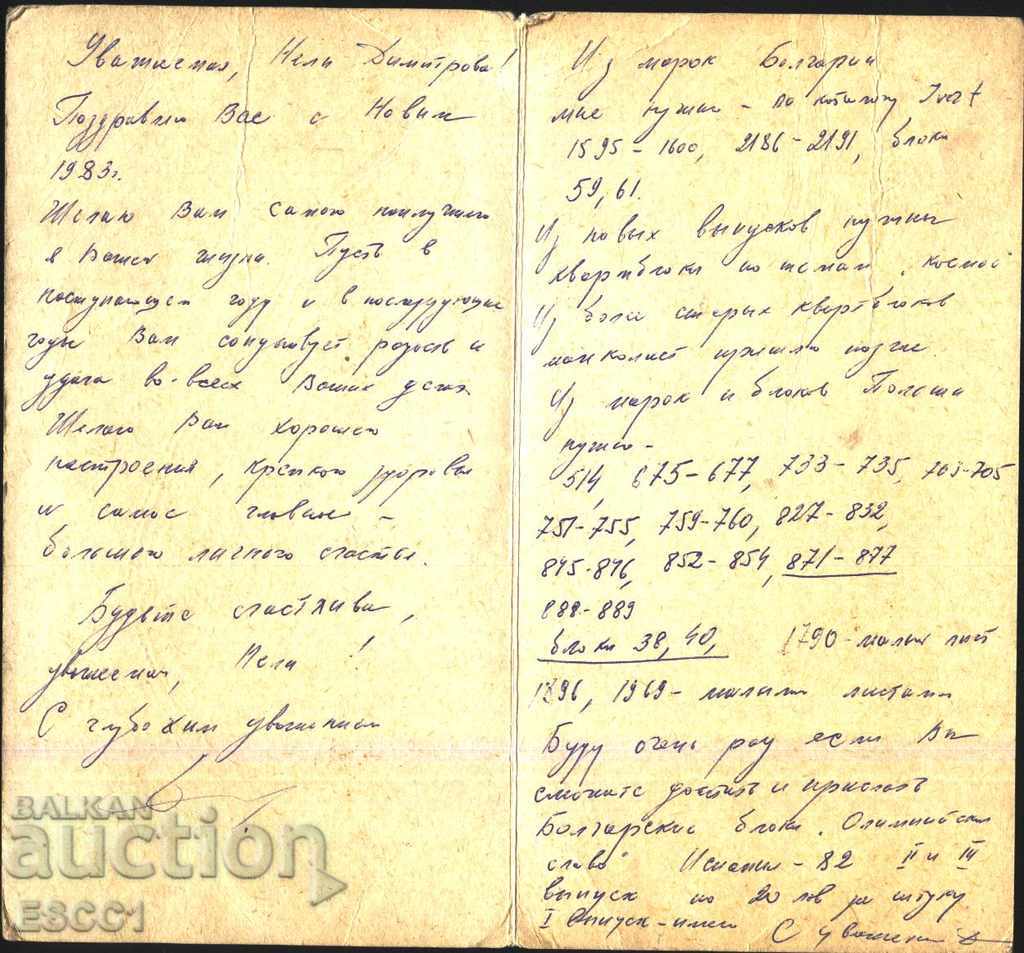 Уважаемая, Нели Димитрова!
Поздравляю Вас с Новым
1983г.
Желаю Вам самого наилучшего
в Вашей жизни. Пусть в
наступающем году и в последующие
годы Вам сопутствует радость и
удача во-всех Ваших делах
Желаю Вам хорошего
настроения, крепкого здоровья
и самое главное -
большого личного счастья.
Будьте счастлива,
уважаемая, Нели!
С глубоким уважением
Из марок Болгарии
мне нужно - по каталогу Ivert
1595-1600, 2186-2191, блоки
59, 61.
Из новых выпусков нужны
квартблоки по темам „космос"
Из более старых квартблоков
манколист пришлю позже.
Из марок и блоков Польши
нужно -
514, 675-677, 733-735, 703-705
751-755, 759-760, 827-832,
845-846, 852-854, 871-877
888-889
блоки 38, 40, 1790-малый лист
1896, 1969- малыми листами
Буду очень рад если Вы
сможете достать и прислать
Болгарские блоки „Олимпийская
слава" Испания-82 II и III
выпуск по 20 лв за штуку
I выпуск-имею С уважением
BALKAN
auction
ESCC1